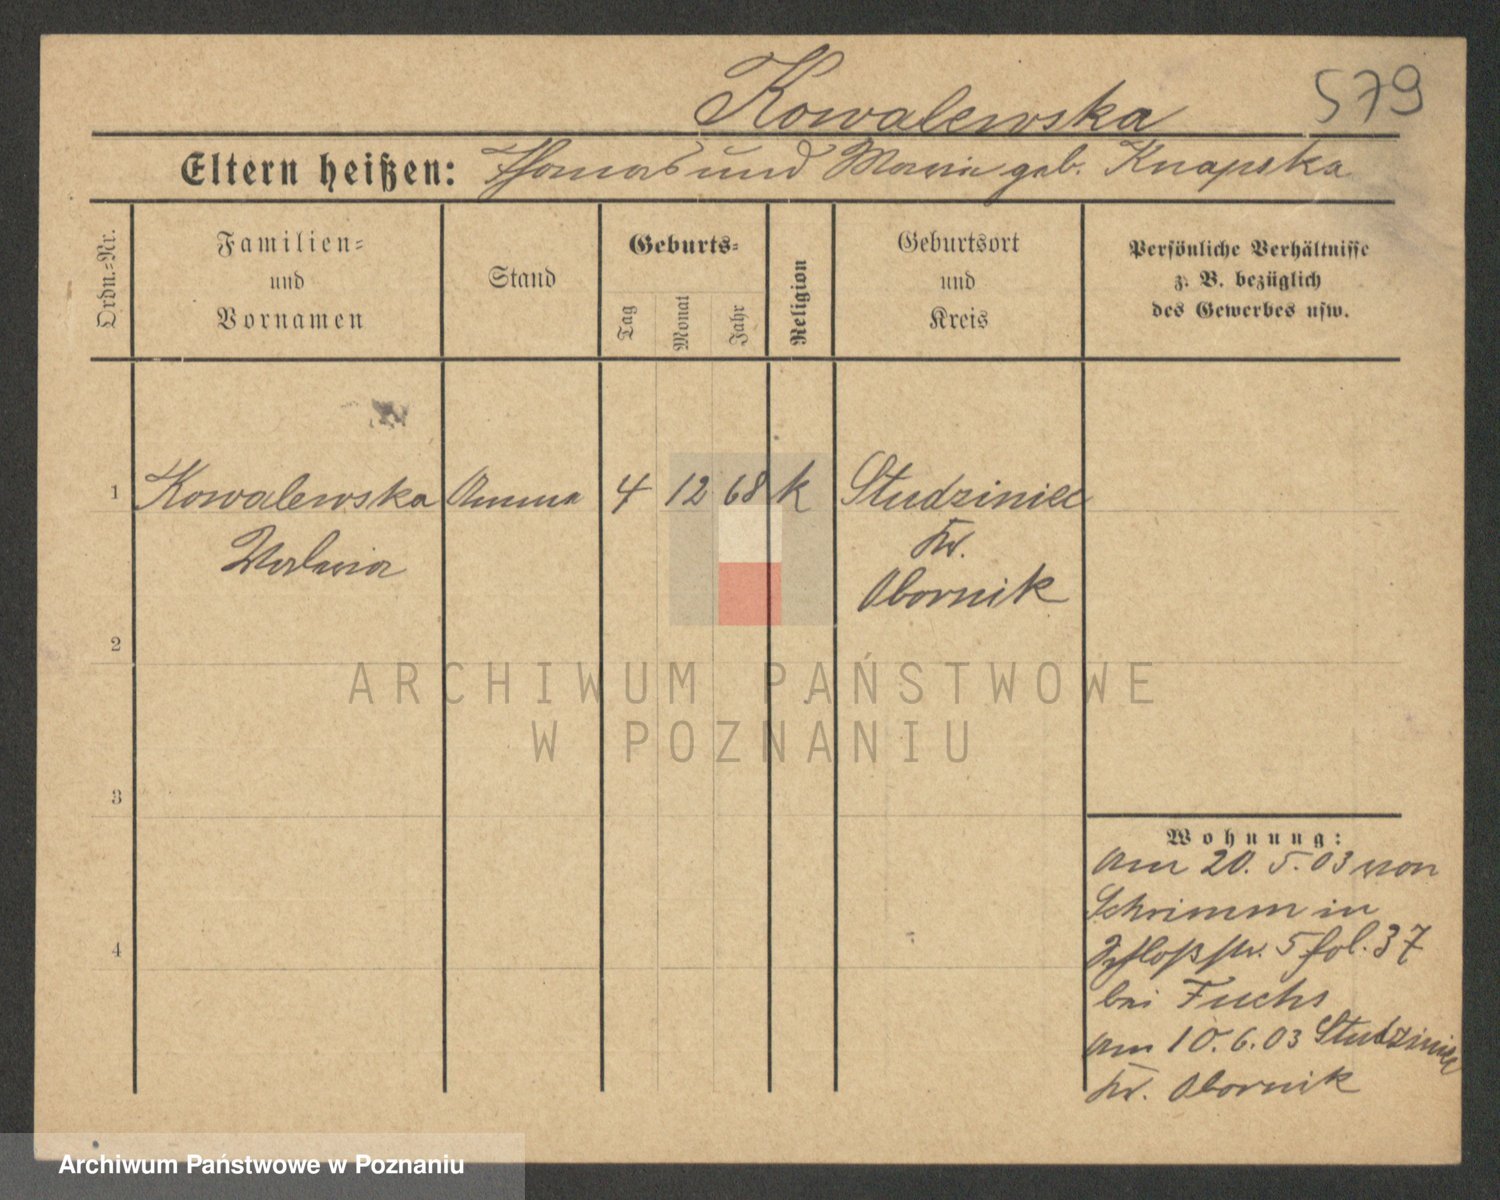 Kowalewska
579
Eltern heißen: Thomas und Maria geb. Knapska
Ordn.=Nr.
Familien=
und
Vornamen
Stand
Geburts=
Tag
Monat
Jahr
Religion
Geburtsort
und
Kreis
Persönliche Verhältnisse
z. B. bezüglich
des Gewerbes usw.
1 Kowalewska Amme 4 12 68 k Studziniec
Kr.
Obornik
2
3
4
Wohnung:
Am 20. 5. 03 von
Schrimm in
Schloßstr. 5 fol. 37
bei Fuchs
Am 10. 6. 03 Studziniec
Kr. Obornik
ARCHIWUM PAŃSTWOWE
W POZNANIU
Archiwum Państwowe w Poznaniu